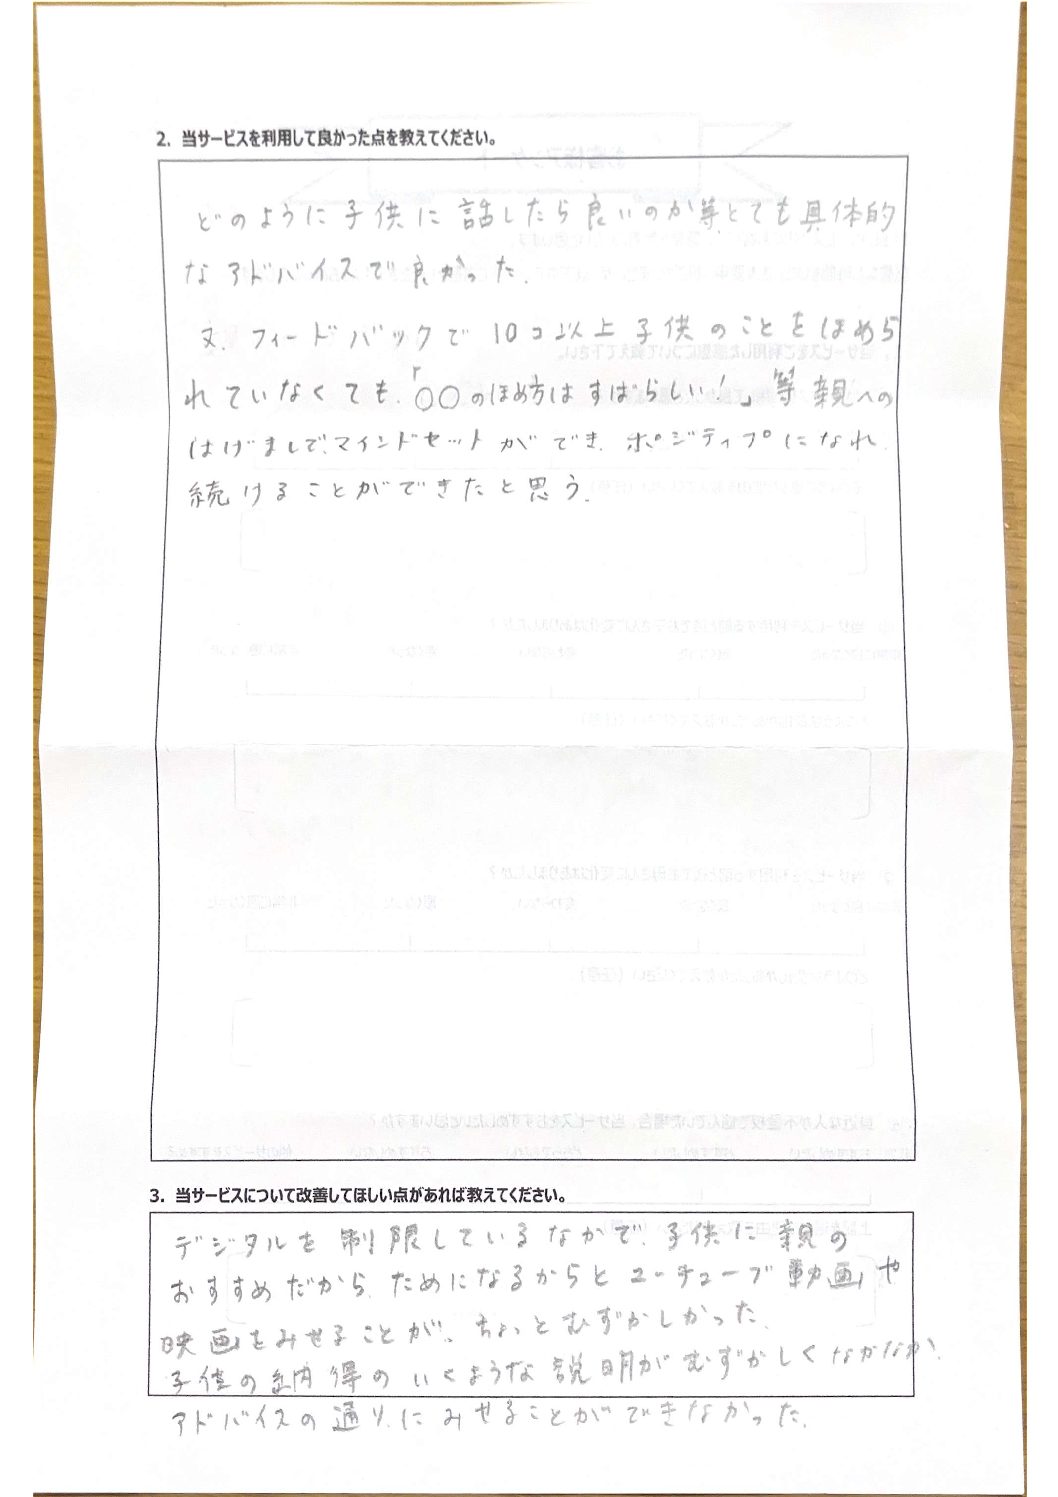 2. 当サービスを利用して良かった点を教えてください。
どのように子供に話したら良いのか等とても具体的
なアドバイスで良かった.
又、フィードバックで10コ以上子供のことをほめら
れていなくても、「〇〇のほめ方はすばらしい！」等親への
はげましで、マインドセットができ、ポジティブになれ、
続けることができたと思う.
3. 当サービスについて改善してほしい点があれば教えてください。
デジタルを制限しているなかで、子供に親の
おすすめだから、ためになるからとユーチューブ動画や
映画をみせることが、ちょっとむずかしかった.
子供の納得のいくような説明がむずかしくなかなか、
アドバイスの通りにみせることができなかった.